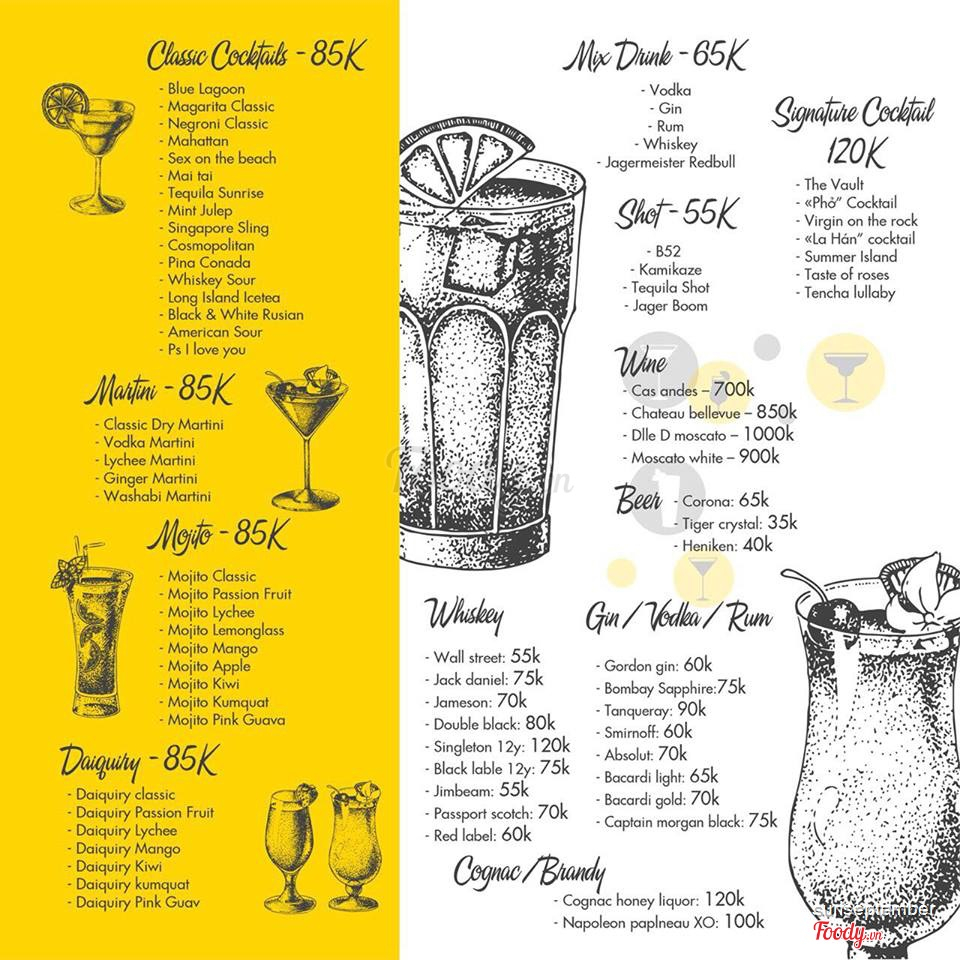 Classic Cocktails - 85K
- Blue Lagoon
- Magarita Classic
- Negroni Classic
- Mahattan
- Sex on the beach
- Mai tai
- Tequila Sunrise
- Mint Julep
- Singapore Sling
- Cosmopolitan
- Pina Conada
- Whiskey Sour
- Long Island Icetea
- Black & White Rusian
- American Sour
- Ps I love you
Martini - 85K
- Classic Dry Martini
- Vodka Martini
- Lychee Martini
- Ginger Martini
- Washabi Martini
Mojito - 85K
- Mojito Classic
- Mojito Passion Fruit
- Mojito Lychee
- Mojito Lemonglass
- Mojito Mango
- Mojito Apple
- Mojito Kiwi
- Mojito Kumquat
- Mojito Pink Guava
Daiquiry - 85K
- Daiquiry classic
- Daiquiry Passion Fruit
- Daiquiry Lychee
- Daiquiry Mango
- Daiquiry Kiwi
- Daiquiry kumquat
- Daiquiry Pink Guav
Mix Drink - 65K
- Vodka
- Gin
- Rum
- Whiskey
- Jagermeister Redbull
Shot - 55K
- B52
- Kamikaze
- Tequila Shot
- Jager Boom
Signature Cocktail
120K
- The Vault
- «Phở” Cocktail
- Virgin on the rock
- «La Hán” cocktail
- Summer Island
- Taste of roses
- Tencha lullaby
Wine
- Cas andes – 700k
- Chateau bellevue – 850k
- Dlle D moscato – 1000k
- Moscato white – 900k
Beer
- Corona: 65k
- Tiger crystal: 35k
- Heniken: 40k
Whiskey
- Wall street: 55k
- Jack daniel: 75k
- Jameson: 70k
- Double black: 80k
- Singleton 12y: 120k
- Black lable 12y: 75k
- Jimbeam: 55k
- Passport scotch: 70k
- Red label: 60k
Gin / Vodka / Rum
- Gordon gin: 60k
- Bombay Sapphire:75k
- Tanqueray: 90k
- Smirnoff: 60k
- Absolut: 70k
- Bacardi light: 65k
- Bacardi gold: 70k
- Captain morgan black: 75k
Cognac / Brandy
- Cognac honey liquor: 120k
- Napoleon paplneau XO: 100k
sunseptember
Foody.vn